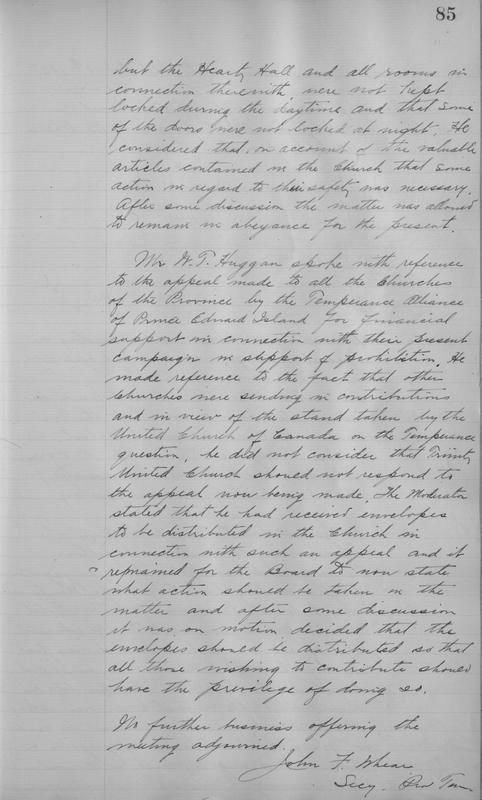 85
but the Heartz Hall and all rooms in
connection therewith were not kept
locked during the daytime and that some
of the doors were not locked at night. He
considered that, on account of the valuable
articles contained in the Church that some
action in regard to their safety was necessary.
After some discussion the matter was allowed
to remain in abeyance for the present.
Mr W. T. Huggan spoke with reference
to the appeal made to all the Churches
of the Province by the Temperance Alliance
of Prince Edward Island for financial
support in connection with their present
campaign in support of prohibition. He
made reference to the fact that other
Churches were sending in contributions
and in view of the stand taken by the
United Church of Canada on the Temperance
question, he did not consider that Trinity
United Church should not respond to
the appeal now being made. The Moderator
stated that he had received envelopes
to be distributed in the Church in
connection with such an appeal and it
remained for the Board to now state
what action should be taken in the
matter and after some discussion
it was on motion decided that the
envelopes should be distributed so that
all those wishing to contribute should
have the privilege of doing so.
No further business offering the
meeting adjourned.
John F. Whear
Secy. Pro Tem.